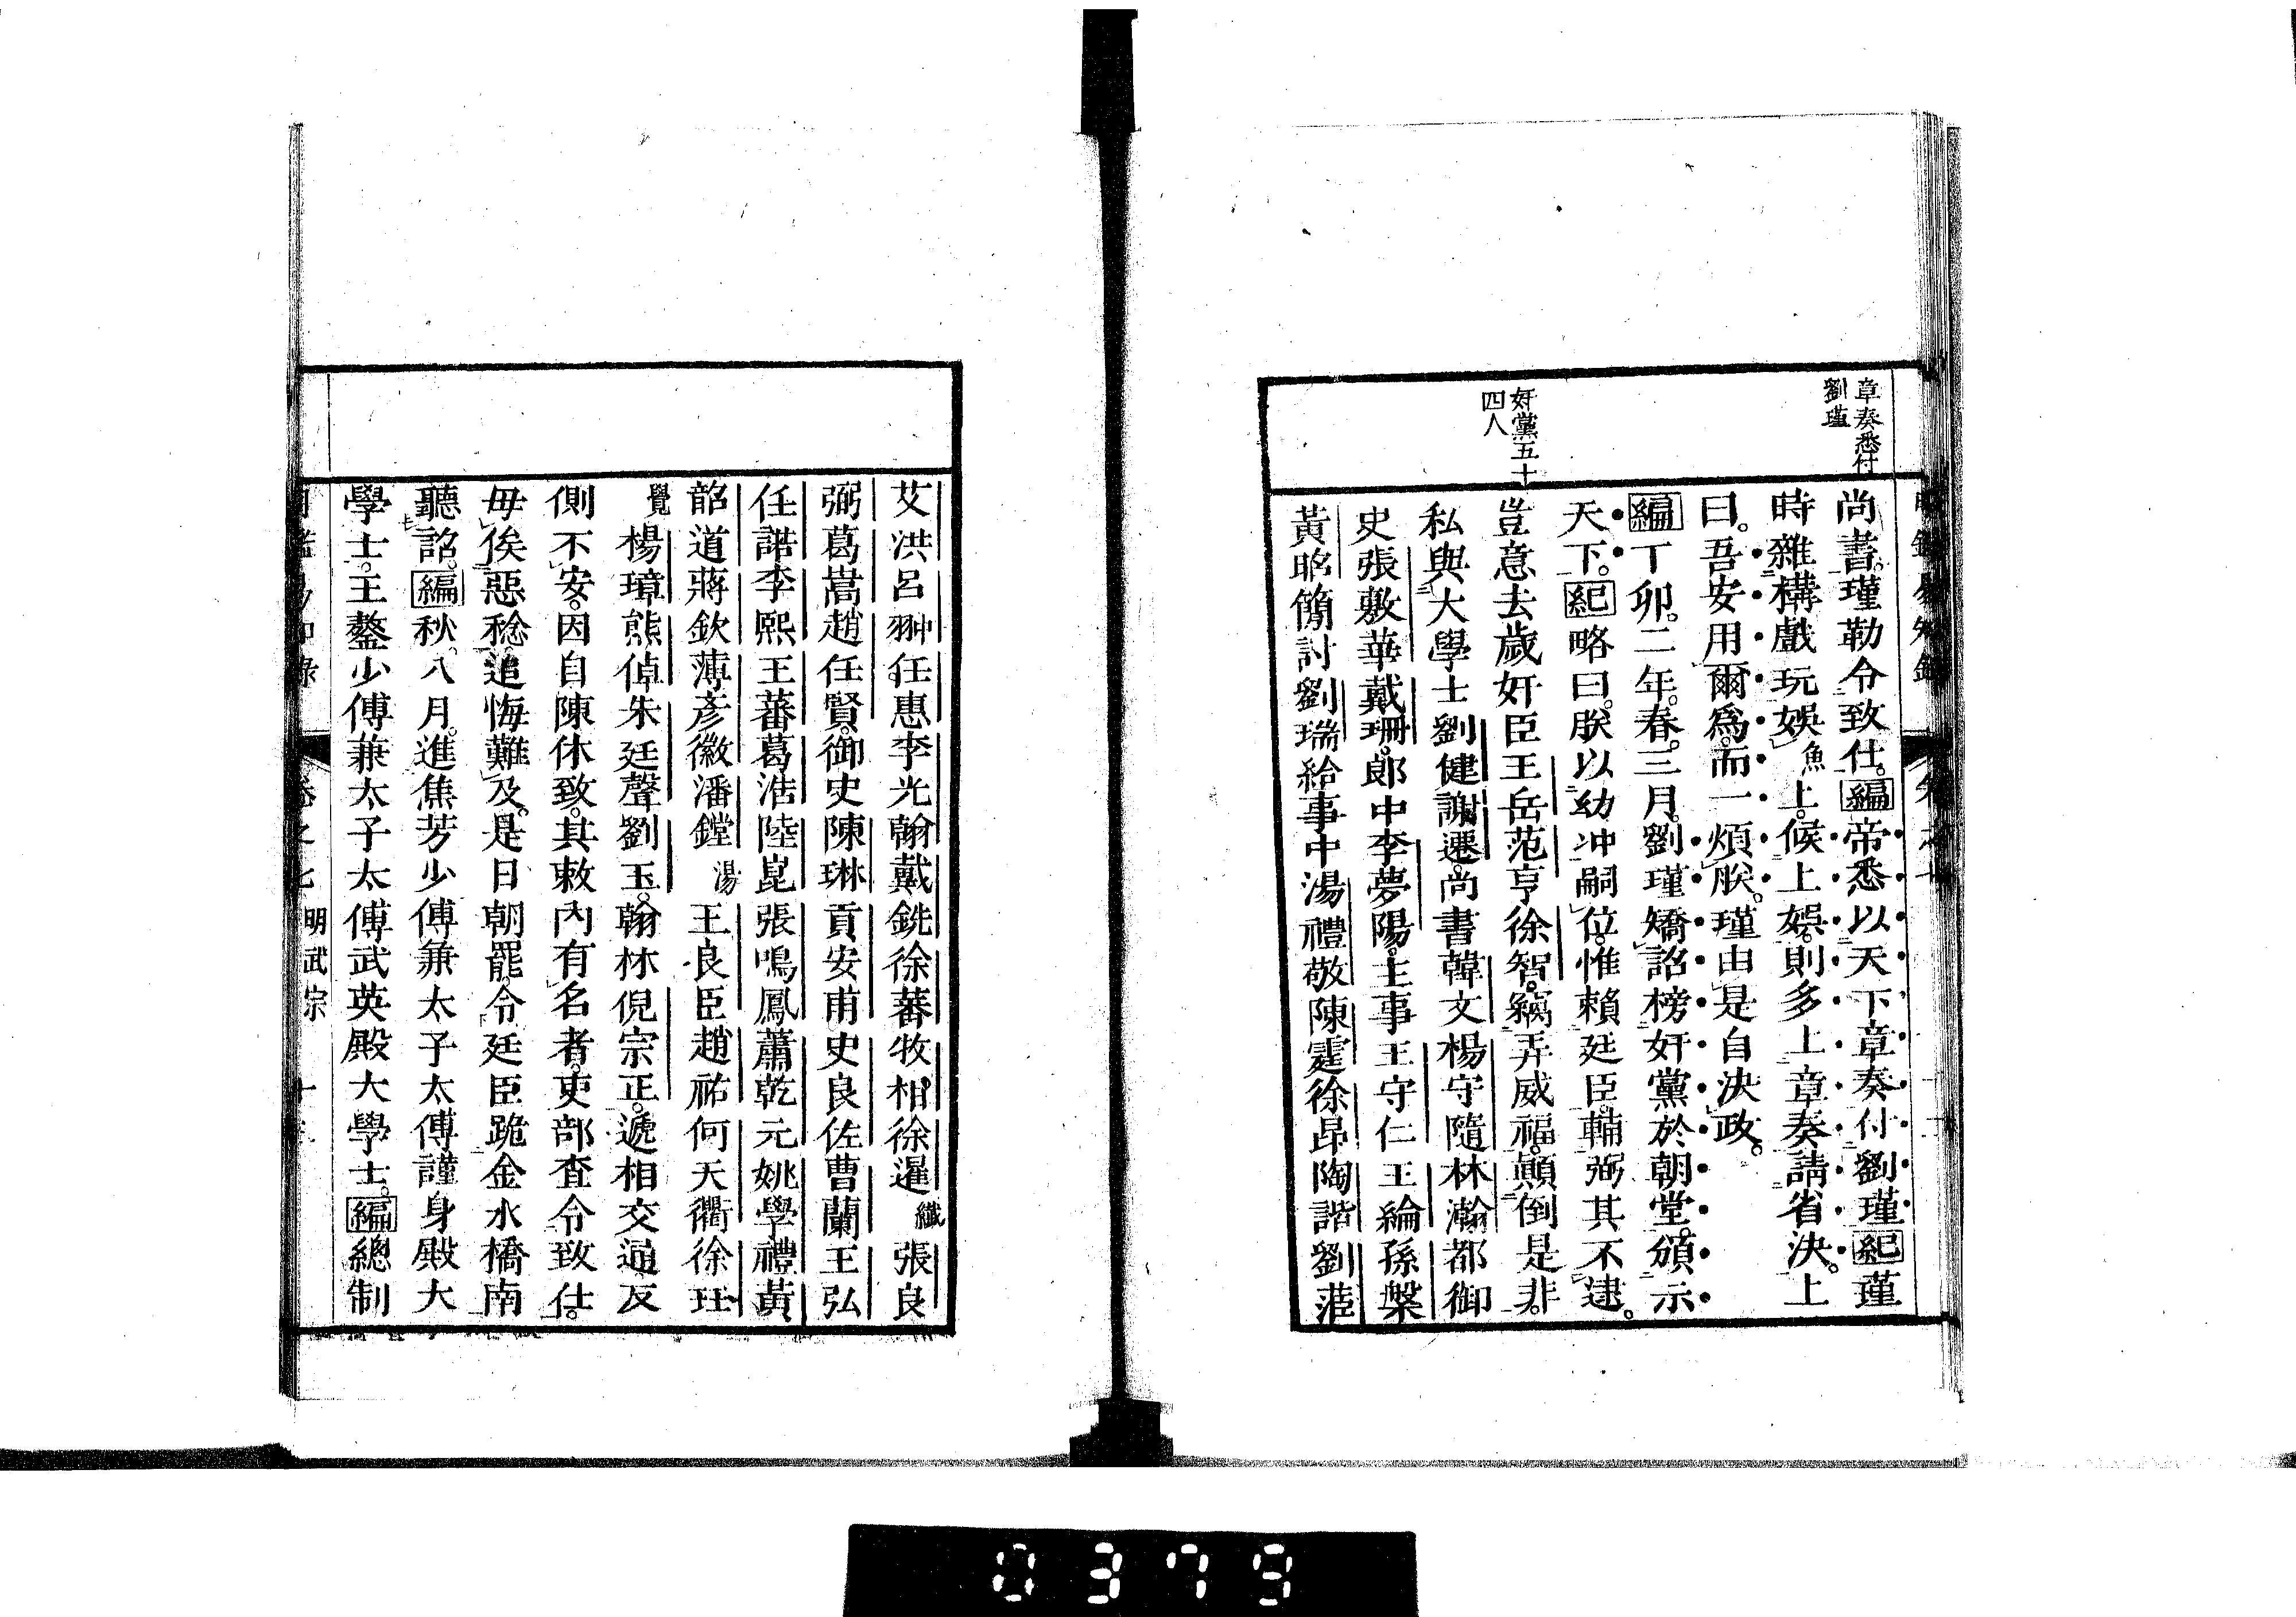 章奏悉付
劉瑾
奸黨五十
四人
尚書。瑾勒令致仕。編帝悉以天下章奏付劉瑾紀瑾
時雜構戲玩娛魚上。候上娛。則多上章奏請省決。上
曰。吾安用爾爲。而一煩朕。瑾由是自決政。
編丁卯。二年。春。三月。劉瑾矯詔榜奸黨於朝堂。頒示
天下。紀略曰。朕以幼冲嗣位。惟賴廷臣。輔弼其不逮。
豈意去歲奸臣王岳范亨徐智。竊弄威福。顚倒是非。
私與大學士劉健謝遷。尚書韓文楊守隨林瀚都御
史張敷華戴珊。郎中李夢陽。主事王守仁王綸孫槃
黃昭簡討劉瑞給事中湯禮敬陳霆徐昂陶諧劉菃
艾洪呂翀任惠李光翰戴銑徐蕃牧相徐暹纖張良
弼葛嵩趙任賢。御史陳琳貢安甫史良佐曹蘭王弘
任諾李熙王蕃葛浩陸崑張鳴鳳蕭乾元姚學禮黃
韶道蔣欽薄彥徽潘鏜湯王良臣趙祐何天衢徐珏
覺楊璋熊倬朱廷聲劉玉。翰林倪宗正。遞相交通反
側不安。因自陳休致。其敕內有名者。吏部査令致仕。
毋俟惡稔。追悔難及。是日朝罷。令廷臣跪金水橋南
聽詔。編秋。八月。進焦芳少傅兼太子太傅謹身殿大
學士。王鏊少傅兼太子太傅武英殿大學士。編總制
卷之七 明武宗
0379